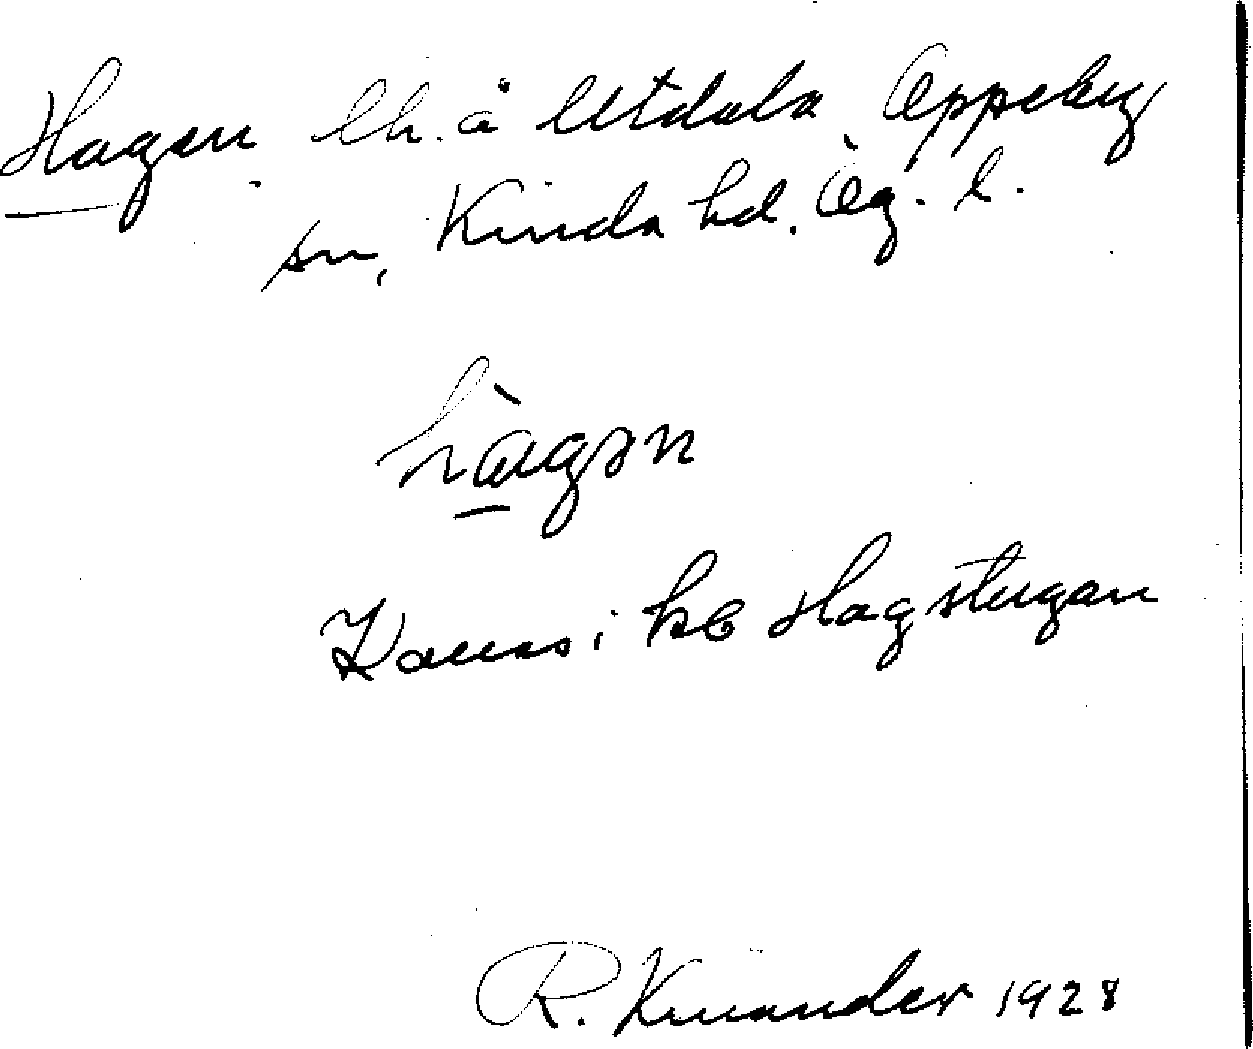 Hagen lh. å Utdala, Oppeby
sn, Kinda hd. Ög. l.
hàgən
Kallas i kb Hagstugan
R. Kinander 1928